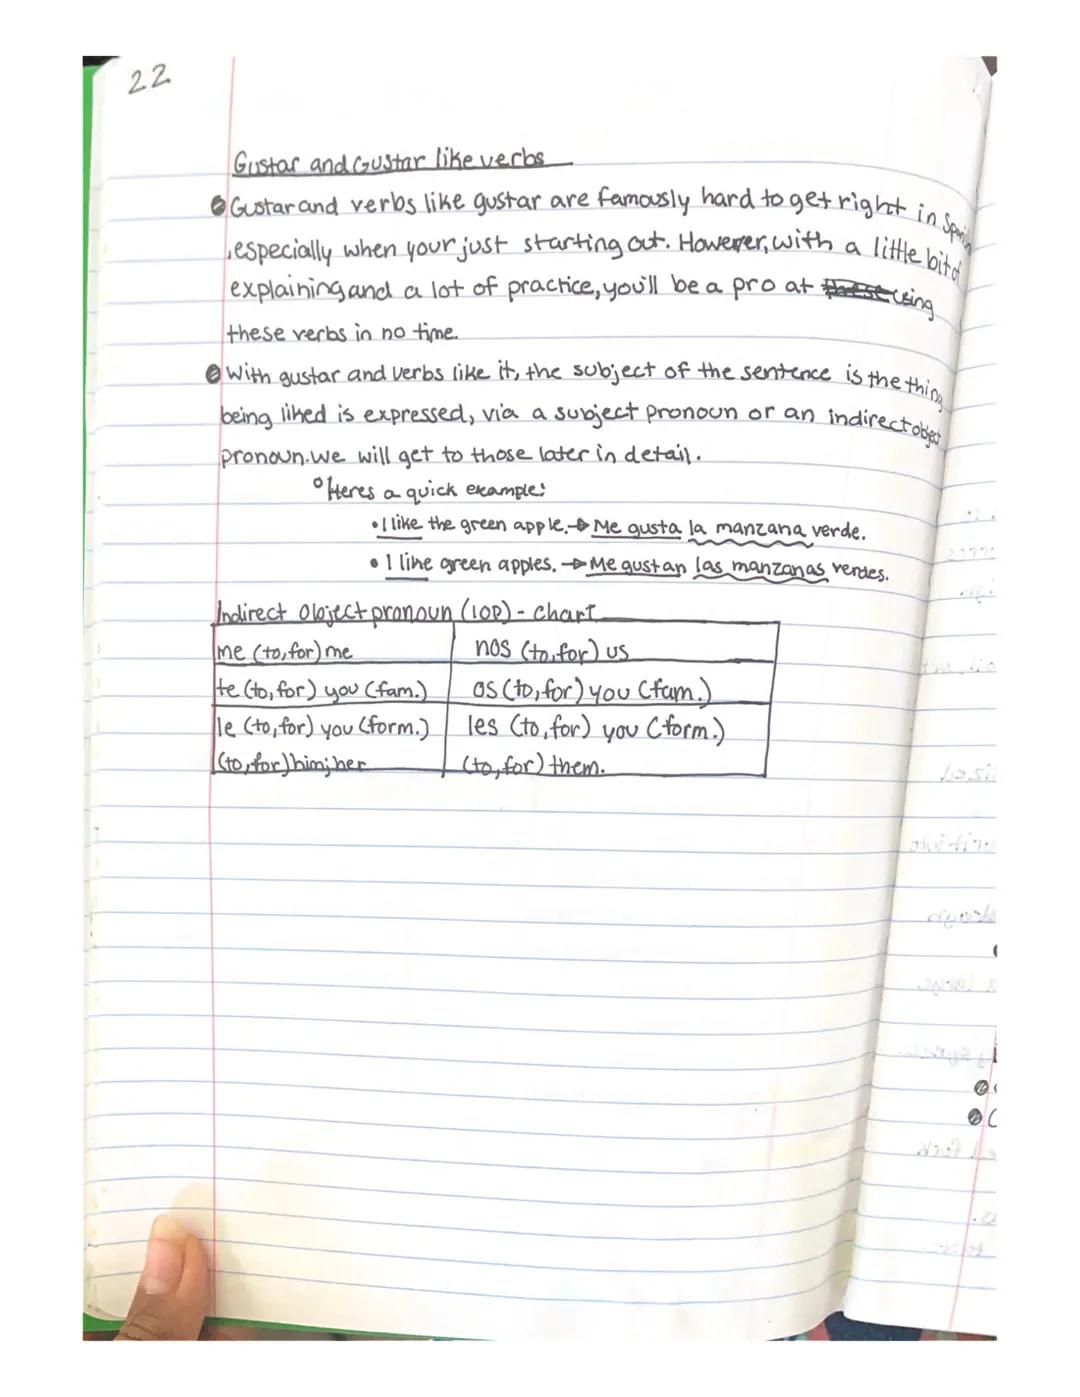 22
Gustar and Gustar like verbs
Gustar and verbs like gustar are famously hard to get right in Spanish
, especially when your just starting out. However, with a little bit of
explaining and a lot of practice, you'll be a pro at these using
these verbs in no time.
With gustar and verbs like it, the subject of the sentence is the thing
being liked is expressed, via a subject pronoun or an indirect object
pronoun. We will get to those later in detail.
Heres a quick example:
• I like the green apple. → Me gusta la manzana verde.
• I like green apples. → Me gustan las manzanas verdes.
Indirect object pronoun (IOP) - chart
me (to, for) me nos (to, for) us
te (to, for) you (fam.) os (to, for) you (fam.)
le (to, for) you (form.) les (to, for) you (form.)
(to, for) him; her (to, for) them.